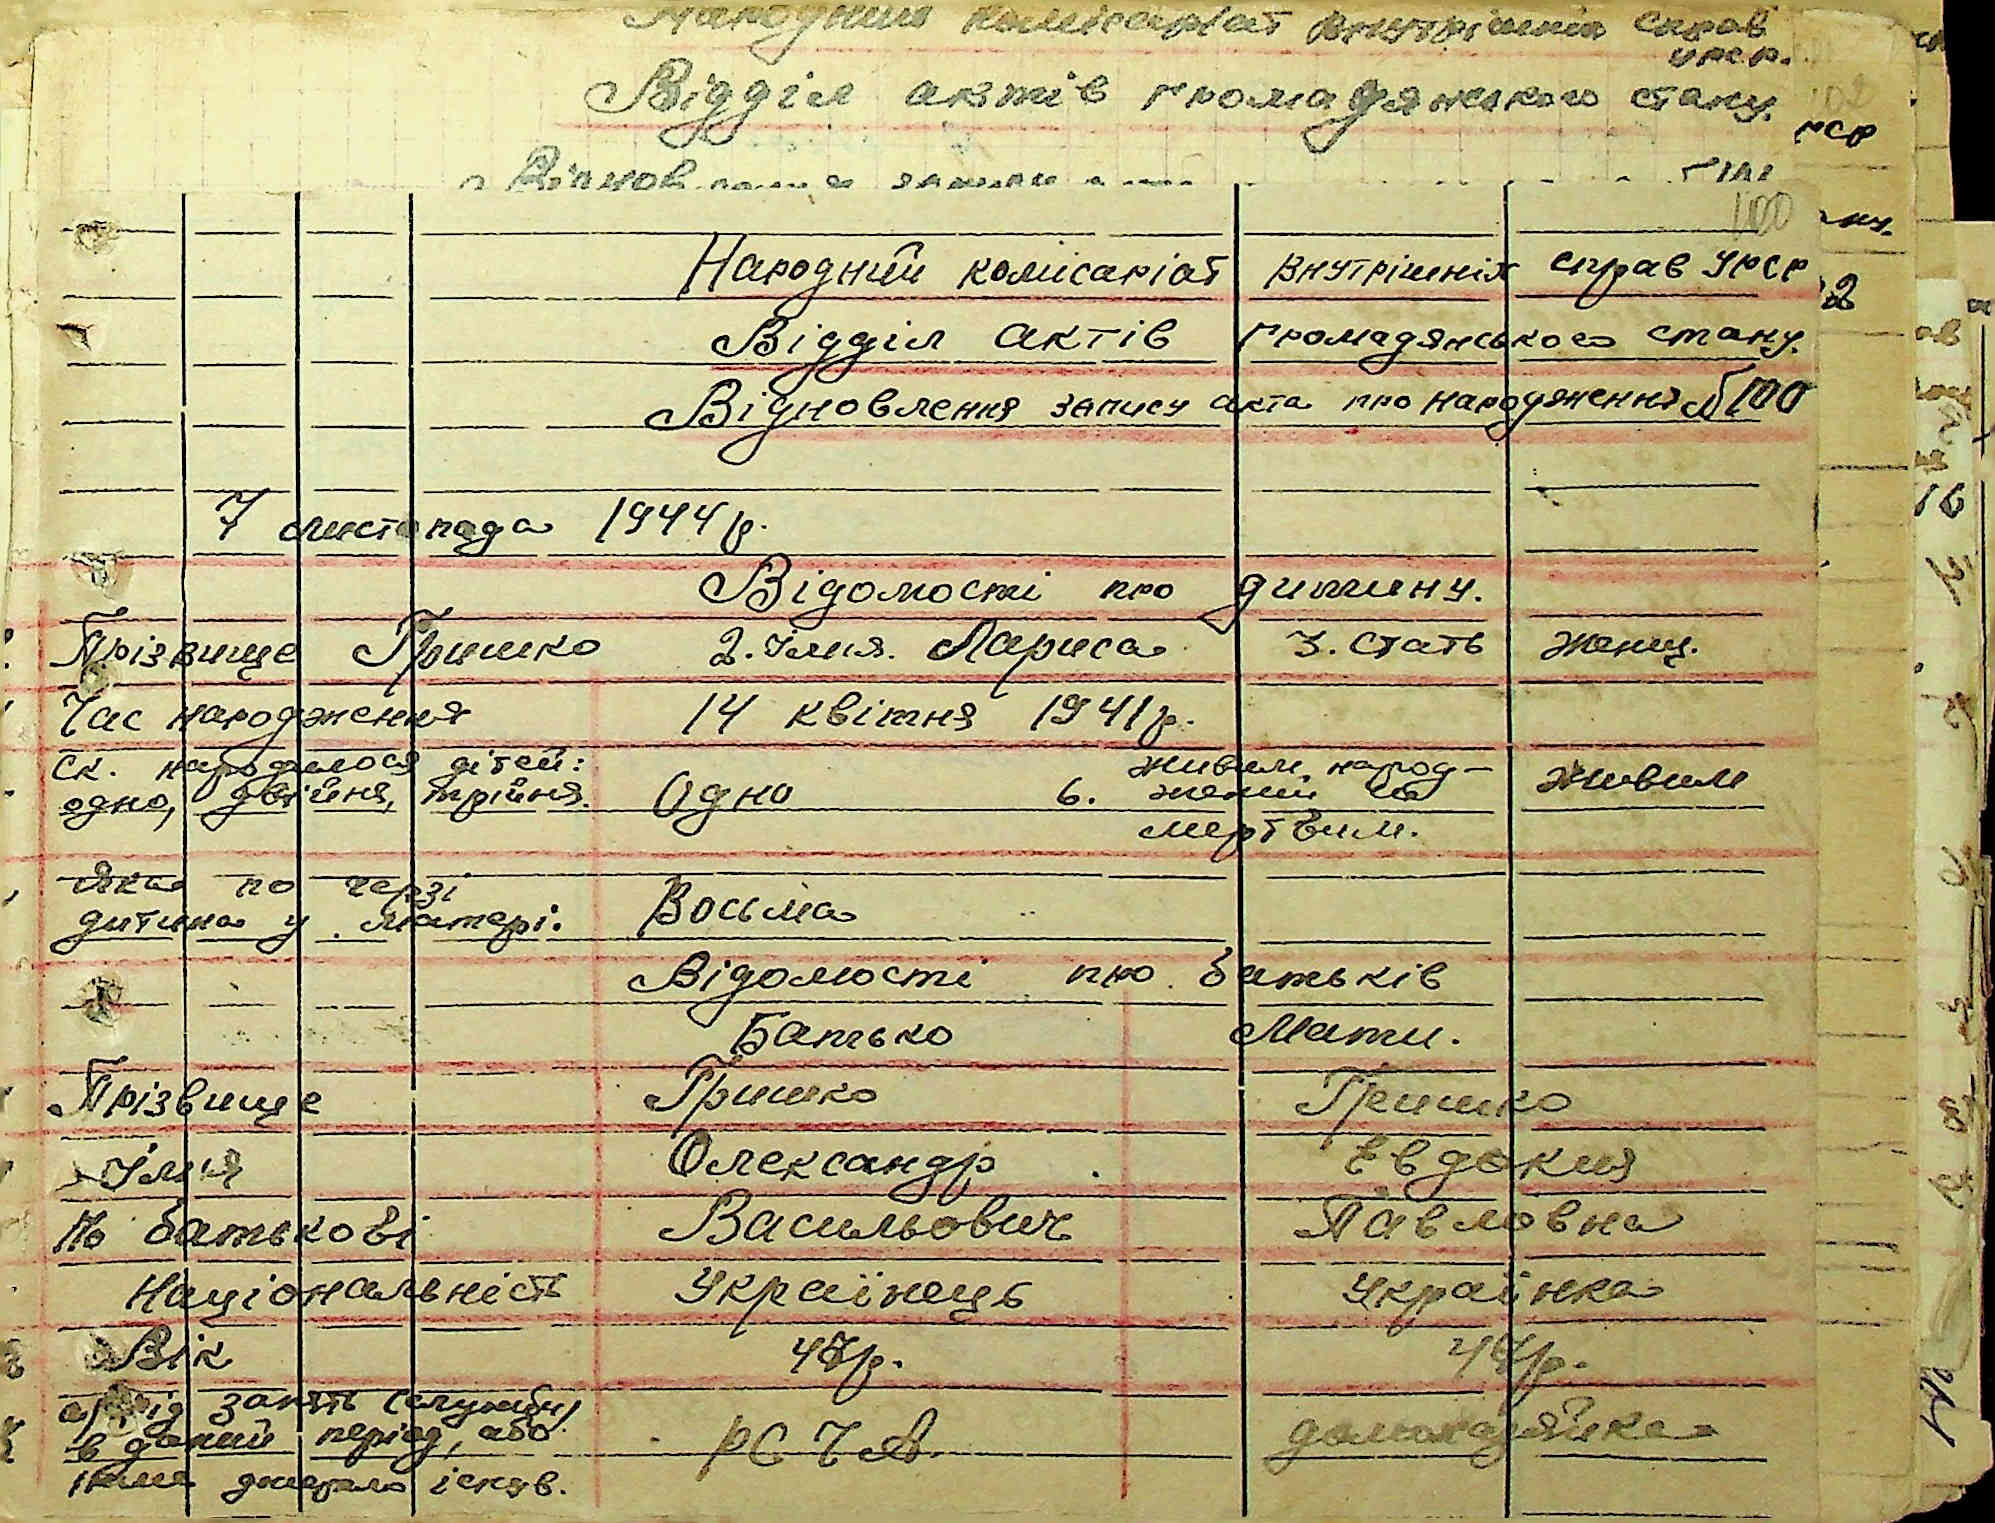 Народний комісаріат внутрішніх справ
УРСР.
Відділ актів громадянського стану.
Відновлення запису
100
Народний комісаріат внутрішніх справ УРСР
Відділ актів громадянського стану.
Відновлення запису акта про народження № 100
7 листопада 1944 р.
Відомості про дитину.
Прізвище Гришко 2. Імля. Лариса 3. Стать жіноч.
Час народження 14 квітня 1941 р.
Ск. народилося дітей: одно, двійня, трійня. Одно 6. живим, народжений чи мертвим. живим
Яка по черзі
дитина у матері. Восьма
Відомості про батьків
Батько Мати.
Прізвище Гришко Гришко
Імля Олександр Евдокия
По батькові Васильович Павловна
Національність Українець Українка
Вік 47 р. 47 р.
рід занять (служби)
в даний період, або РСЧА домохазяйка
інше джерело існув.